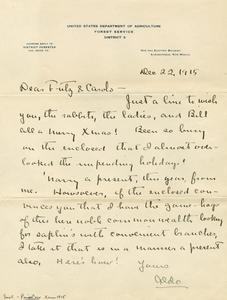 UNITED STATES DEPARTMENT OF AGRICULTURE
FOREST SERVICE
DISTRICT 3
ADDRESS REPLY TO
DISTRICT FORESTER
AND REFER TO
Gas and Electric Building
Albuquerque, New Mexico
Dec 22, 1915
Dear Fritz & Carolo-
Just a line to wish
you, the rabbits, the ladies, and Bill
all a Merry Xmas! Been so busy
on the enclosed that I almost over-
looked the impending holidays!
Narry a present, this year, from
me. Howsoever, if the enclosed con-
vinces you that I have the game-hogs
of this here noble commonwealth looking
for saplin's with convenient branches,
I take it that is in a manner a present
also. Here's how!
Yours
Aldo.